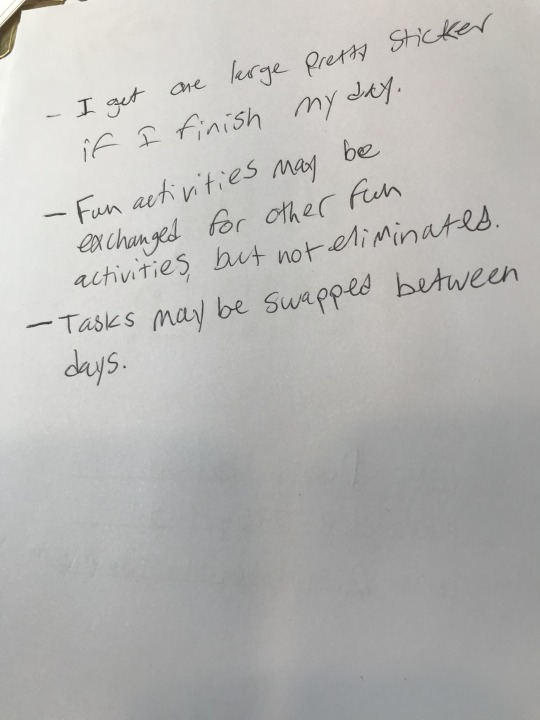 - I get one large pretty sticker
if I finish my day.
- Fun activities may be
exchanged for other fun
activities, but not eliminated.
- Tasks may be swapped between
days.